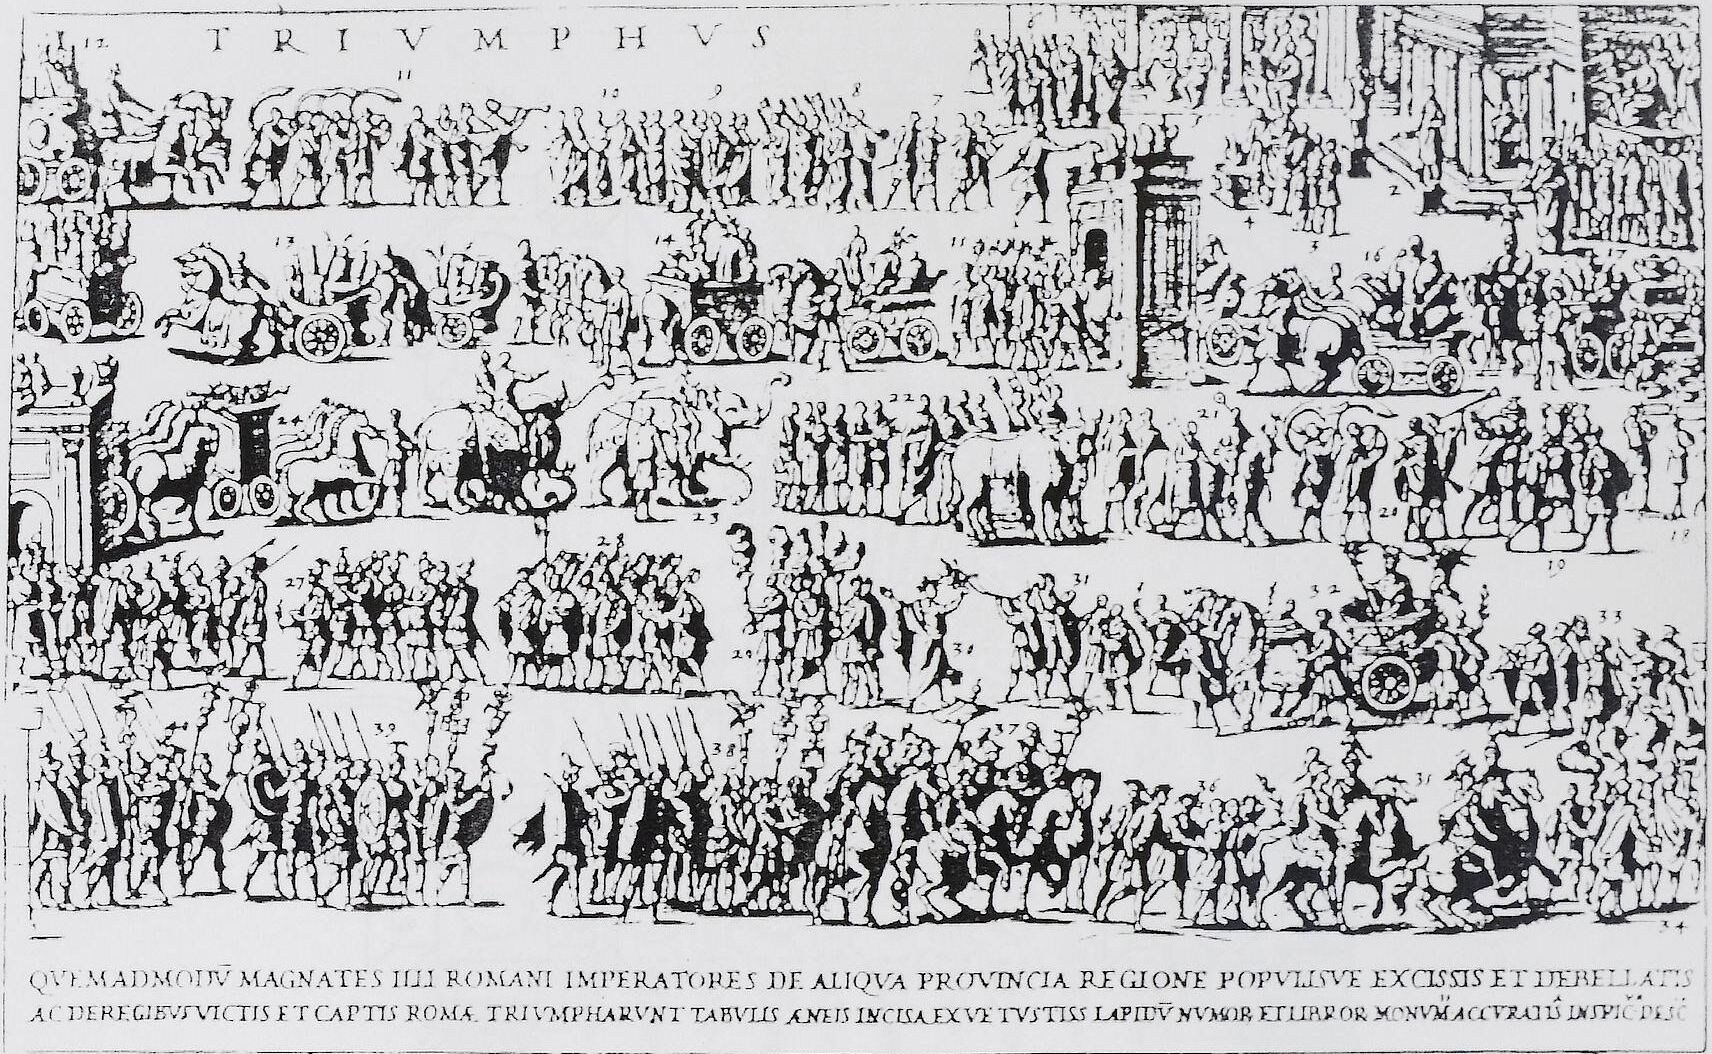 TRIVMPHVS
12
11
10
9
8
7
2
4
3
13
14
15
16
17
24
22
21
23
20
19
18
27
28
29
30
31
32
33
40
39
38
37
36
35
34
QVEMADMODṼ MAGNATES ILLI ROMANI IMPERATORES DE ALIQVA PROVINCIA REGIONE POPVLISVE EXCISSIS ET DEBELLATIS
AC DE REGIBVS VICTIS ET CAPTIS ROMÆ TRIVMPHARVNT TABVLIS ÆNEIS INCISA EX VETVSTISS LAPIDṼ NVMOR ET LIBROR MONVM ACCVRATIS